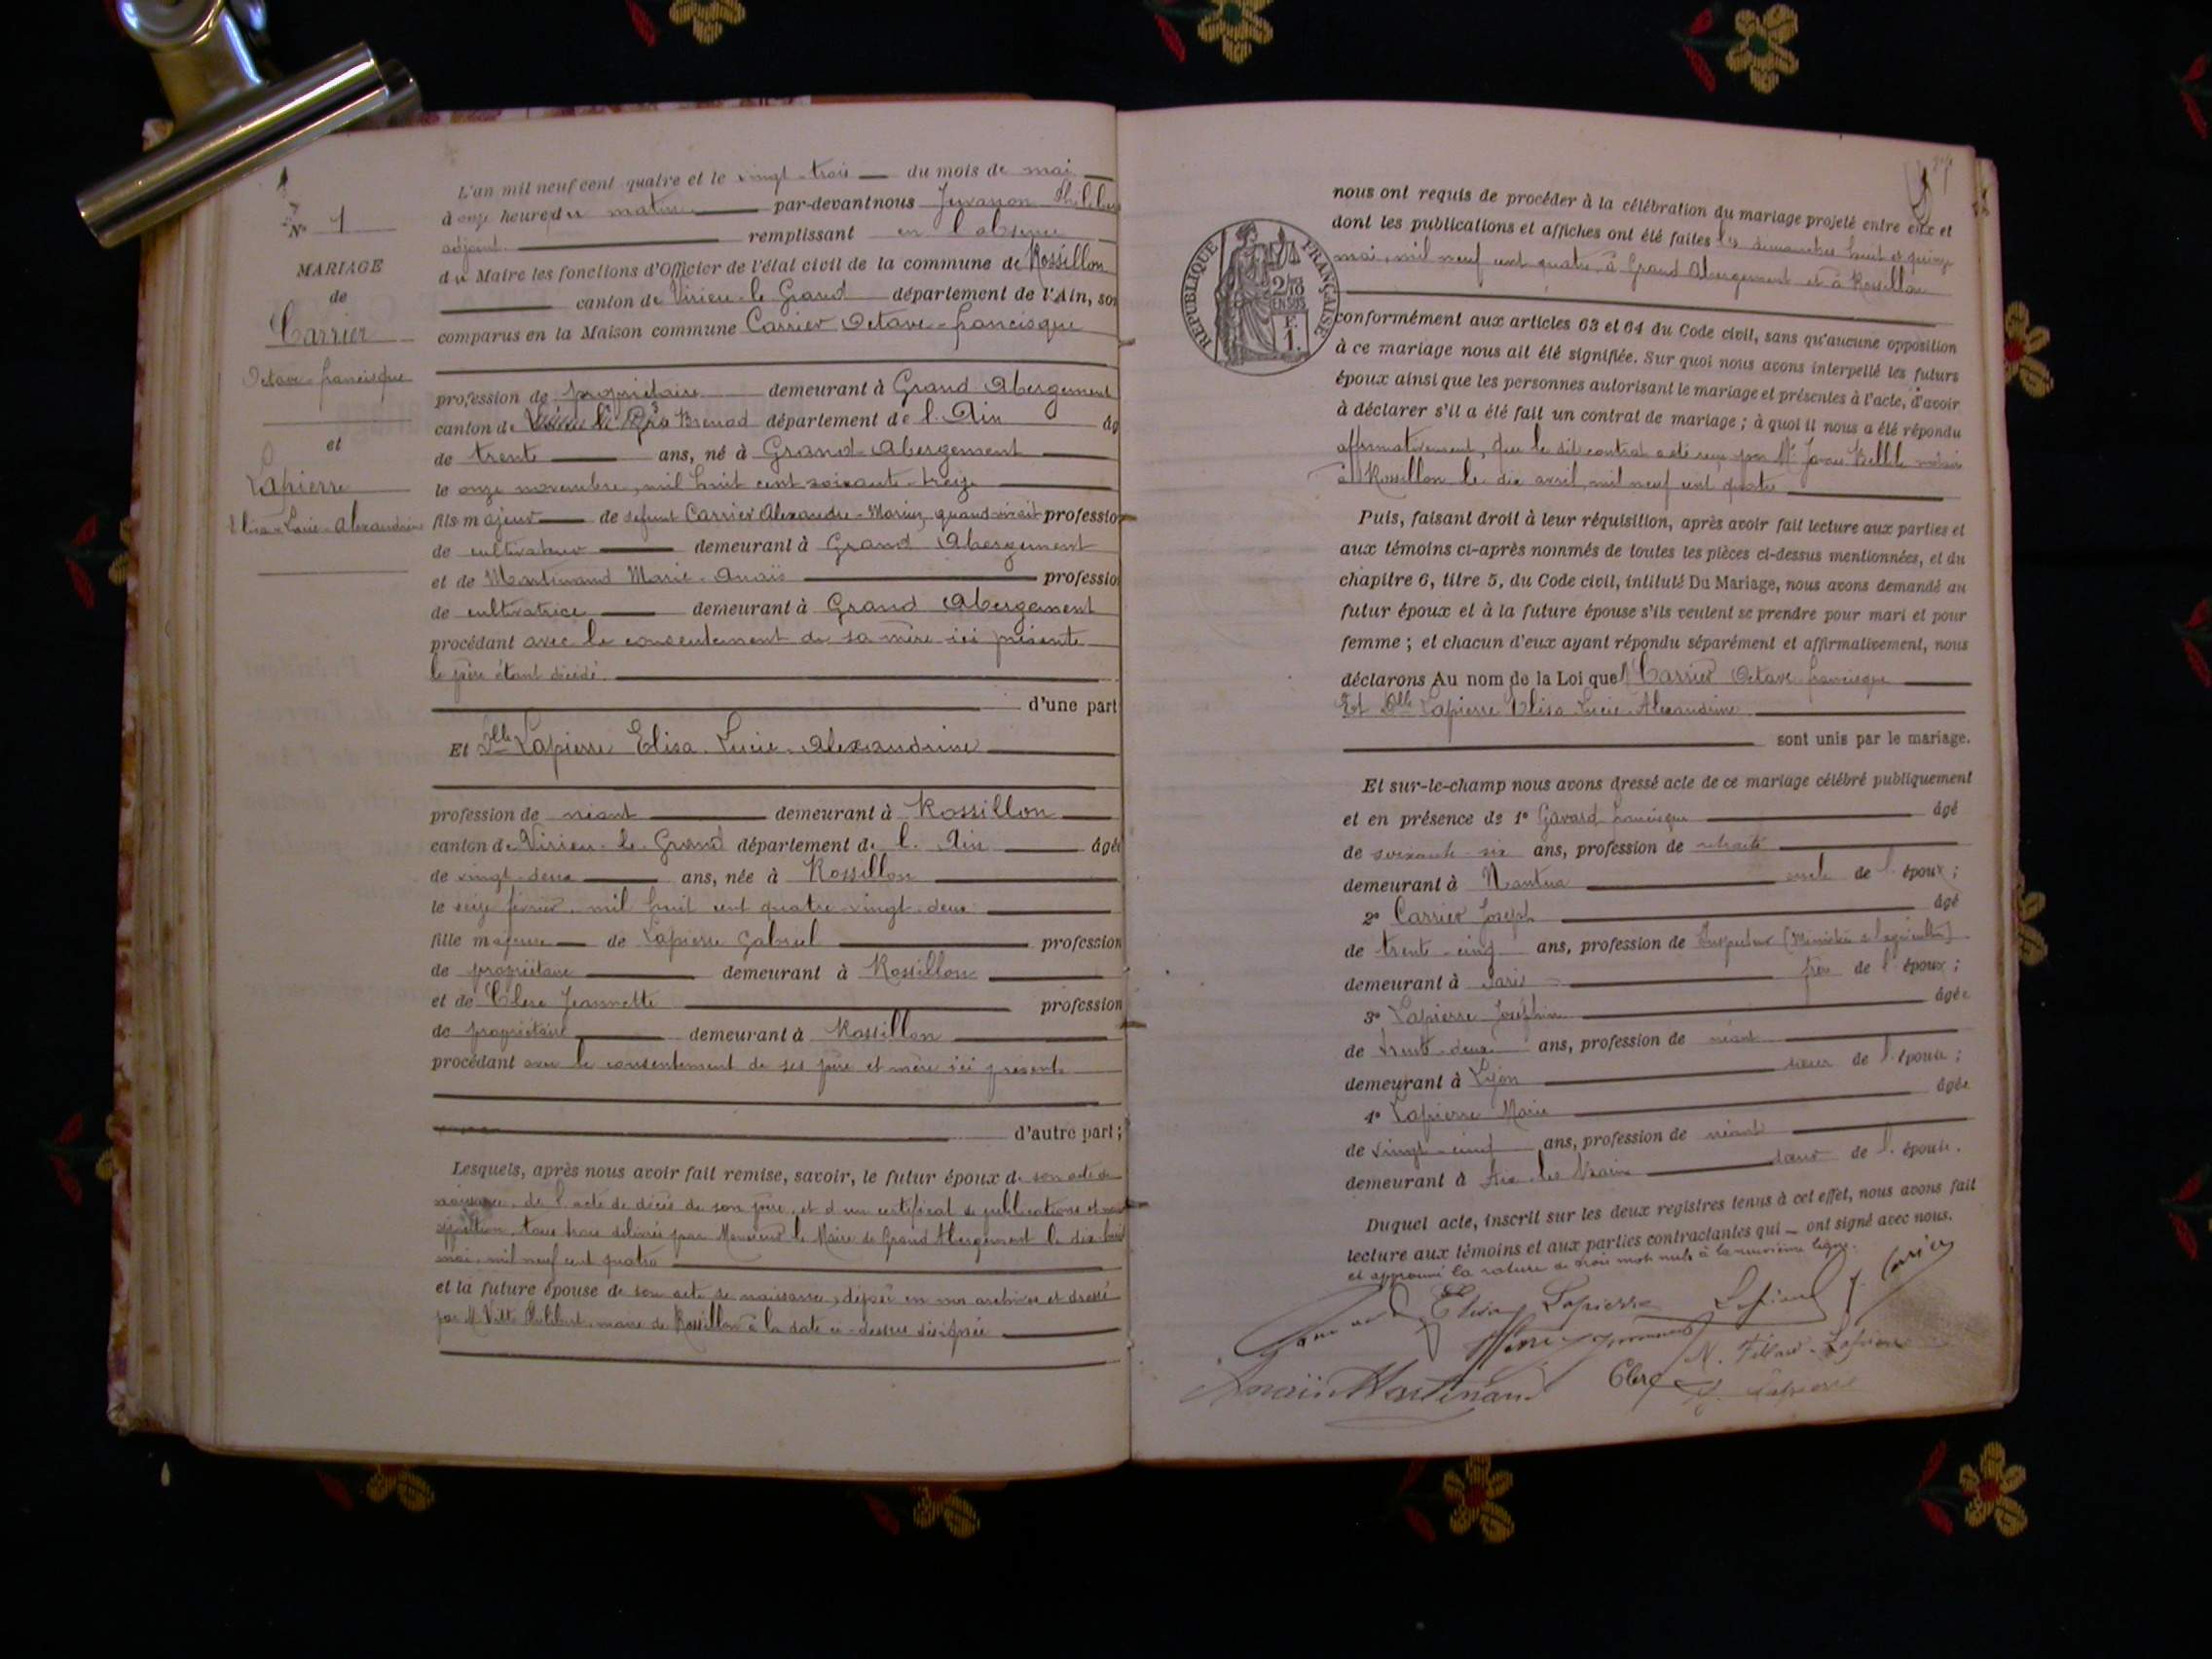 N° 1
MARIAGE
de
Carrier
Octave-francisque
et
Lapierre
Elisa-Lucie-Alexandrine
L'an mil neuf cent quatre et le vingt-trois du mois de mai
à onze heures du matin par-devant nous Juvanon Philibert
adjoint remplissant en l'absence
du Maire les fonctions d'Officier de l'état civil de la commune de Rossillon
canton de Virieu-le-Grand département de l'Ain, son
comparus en la Maison commune Carrier Octave-francisque
profession de propriétaire demeurant à Grand Abergement
canton de Brenod département de l'Ain âg
de trente ans, né à Grand-Abergement
le onze novembre, mil huit cent soixante-treize
fils majeur de défunt Carrier Alexandre-Marius, quand vivait profession
de cultivateur demeurant à Grand Abergement
et de Martinand Marie-Anaïs profession
de cultivatrice demeurant à Grand Abergement
procédant avec le consentement de sa mère ici présente
le père étant décédé
d'une part
Et Dlle Lapierre Elisa-Lucie-Alexandrine
profession de néant demeurant à Rossillon
canton de Virieu-le-Grand département de l'Ain âgée
de vingt-deux ans, née à Rossillon
le seize février, mil huit cent quatre-vingt-deux
fille majeure de Lapierre Gabriel profession
de propriétaire demeurant à Rossillon
et de Clerc Jeannette profession
de propriétaire demeurant à Rossillon
procédant avec le consentement de ses père et mère ici présents
d'autre part;
Lesquels, après nous avoir fait remise, savoir, le futur époux de son acte de
naissance, de l'acte de décès de son père, et d'un certificat de publications et non
opposition, tous trois délivrés par Monsieur le Maire de Grand Abergement le dix-huit
mai, mil neuf cent quatre
et la future épouse de son acte de naissance, déposé en nos archives et dressé
par M. Vitte Philibert, maire de Rossillon à la date ci-dessus désignée
RÉPUBLIQUE FRANÇAISE
2/10
EN SUS
F.
1.
nous ont requis de procéder à la célébration du mariage projeté entre eux et
dont les publications et affiches ont été faites les dimanches huit et quinze
mai, mil neuf cent quatre, à Grand Abergement et à Rossillon
conformément aux articles 63 et 64 du Code civil, sans qu'aucune opposition
à ce mariage nous ait été signifiée. Sur quoi nous avons interpellé les futurs
époux ainsi que les personnes autorisant le mariage et présentes à l'acte, d'avoir
à déclarer s'il a été fait un contrat de mariage; à quoi il nous a été répondu
affirmativement, que le dit contrat a été reçu par Me notaire
à Rossillon le dix avril, mil neuf cent quatre
Puis, faisant droit à leur réquisition, après avoir fait lecture aux parties et
aux témoins ci-après nommés de toutes les pièces ci-dessus mentionnées, et du
chapitre 6, titre 5, du Code civil, intitulé Du Mariage, nous avons demandé au
futur époux et à la future épouse s'ils veulent se prendre pour mari et pour
femme; et chacun d'eux ayant répondu séparément et affirmativement, nous
déclarons Au nom de la Loi que Carrier Octave francisque
Et Dlle Lapierre Elisa-Lucie-Alexandrine
sont unis par le mariage.
Et sur-le-champ nous avons dressé acte de ce mariage célébré publiquement
et en présence de 1° Gavard francisque âgé
de soixante-six ans, profession de retraité
demeurant à Nantua oncle de l'époux;
2° Carrier Joseph âgé
de trente-cinq ans, profession de Inspecteur (Ministère de l'agriculture)
demeurant à Paris frère de l'époux;
3° Lapierre Joséphine âgée
de trente-deux ans, profession de néant
demeurant à Lyon soeur de l'épouse;
4° Lapierre Marie âgée
de vingt-cinq ans, profession de néant
demeurant à Aix-les-Bains soeur de l'épouse.
Duquel acte, inscrit sur les deux registres tenus à cet effet, nous avons fait
lecture aux témoins et aux parties contractantes qui ont signé avec nous.
et approuvé la rature de trois mots nuls à la neuvième ligne.
Elisa Lapierre
J. Carrier
Anaïs Martinand
Clerc
Lapierre